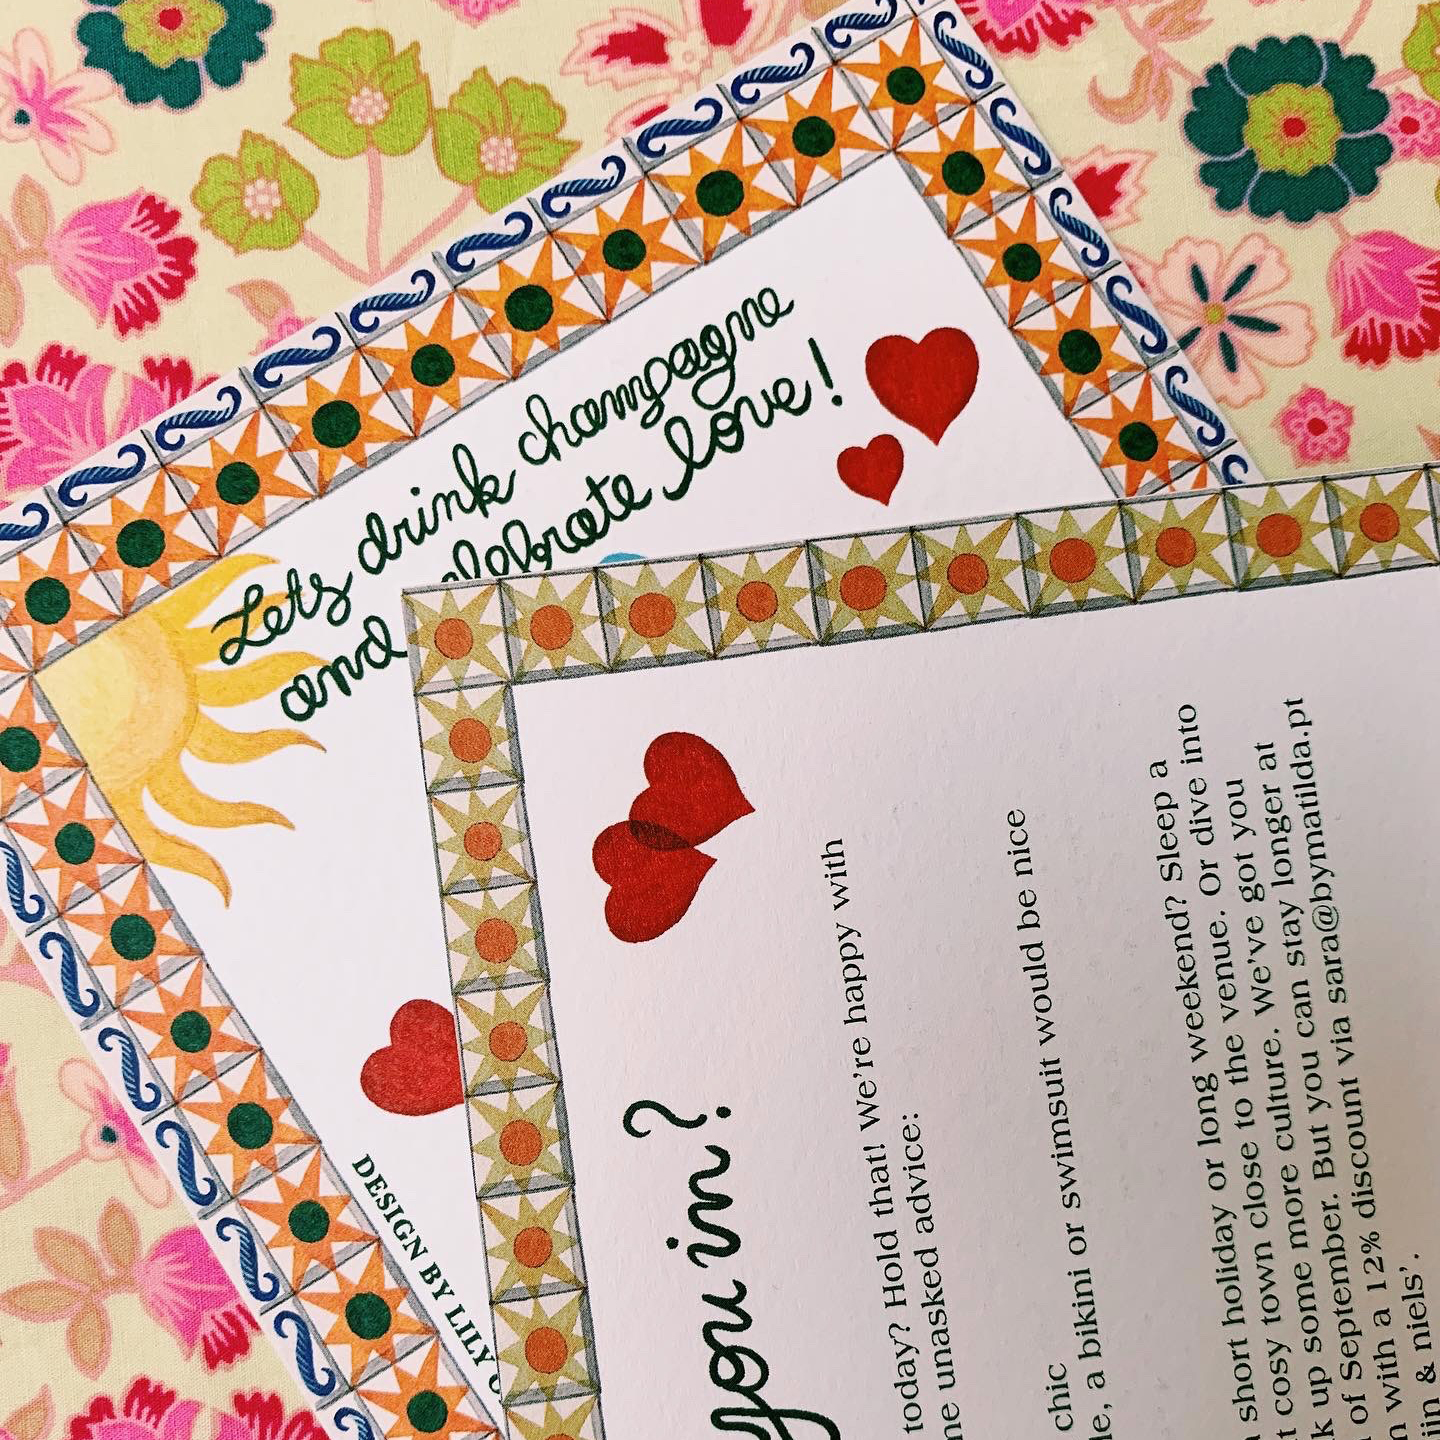 Lets drink champagne
and celebrate love!
DESIGN BY LILY
you in?
today? Hold that! We're happy with
unasked advice:
chic
a bikini or swimsuit would be nice
short holiday or long weekend? Sleep a
cosy town close to the venue. Or dive into
up some more culture. We've got you
of September. But you can stay longer at
with a 12% discount via sara@bymatilda.pt
& niels'.